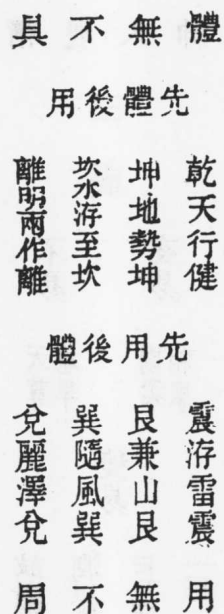 體無不具
先體後用
乾天行健
坤地勢坤
坎水洊至坎
離明兩作離
先用後體
震洊雷震
艮兼山艮
巽隨風巽
兌麗澤兌
用無不周